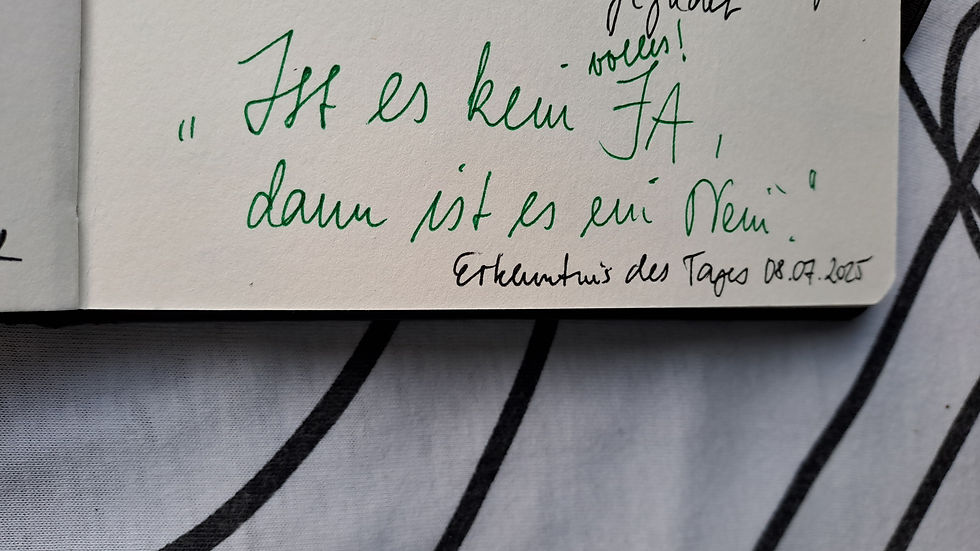 volles!
„Ist es kein JA,
dann ist es ein Nein."
Erkenntnis des Tages 08.07.2025